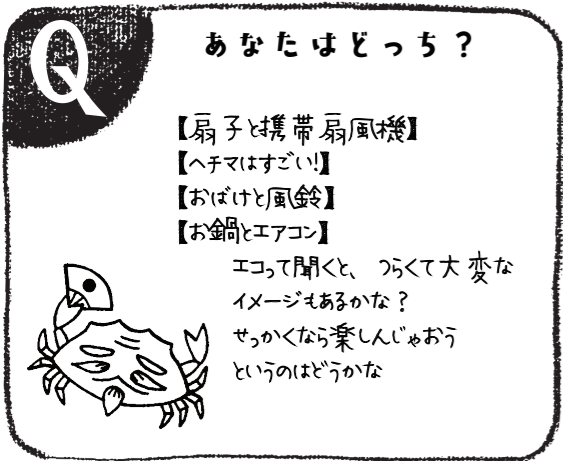 Q
あなたはどっち？
【扇子と携帯扇風機】
【ヘチマはすごい!】
【おばけと風鈴】
【お鍋とエアコン】
エコって聞くと、つらくて大変な
イメージもあるかな？
せっかくなら楽しんじゃおう
というのはどうかな